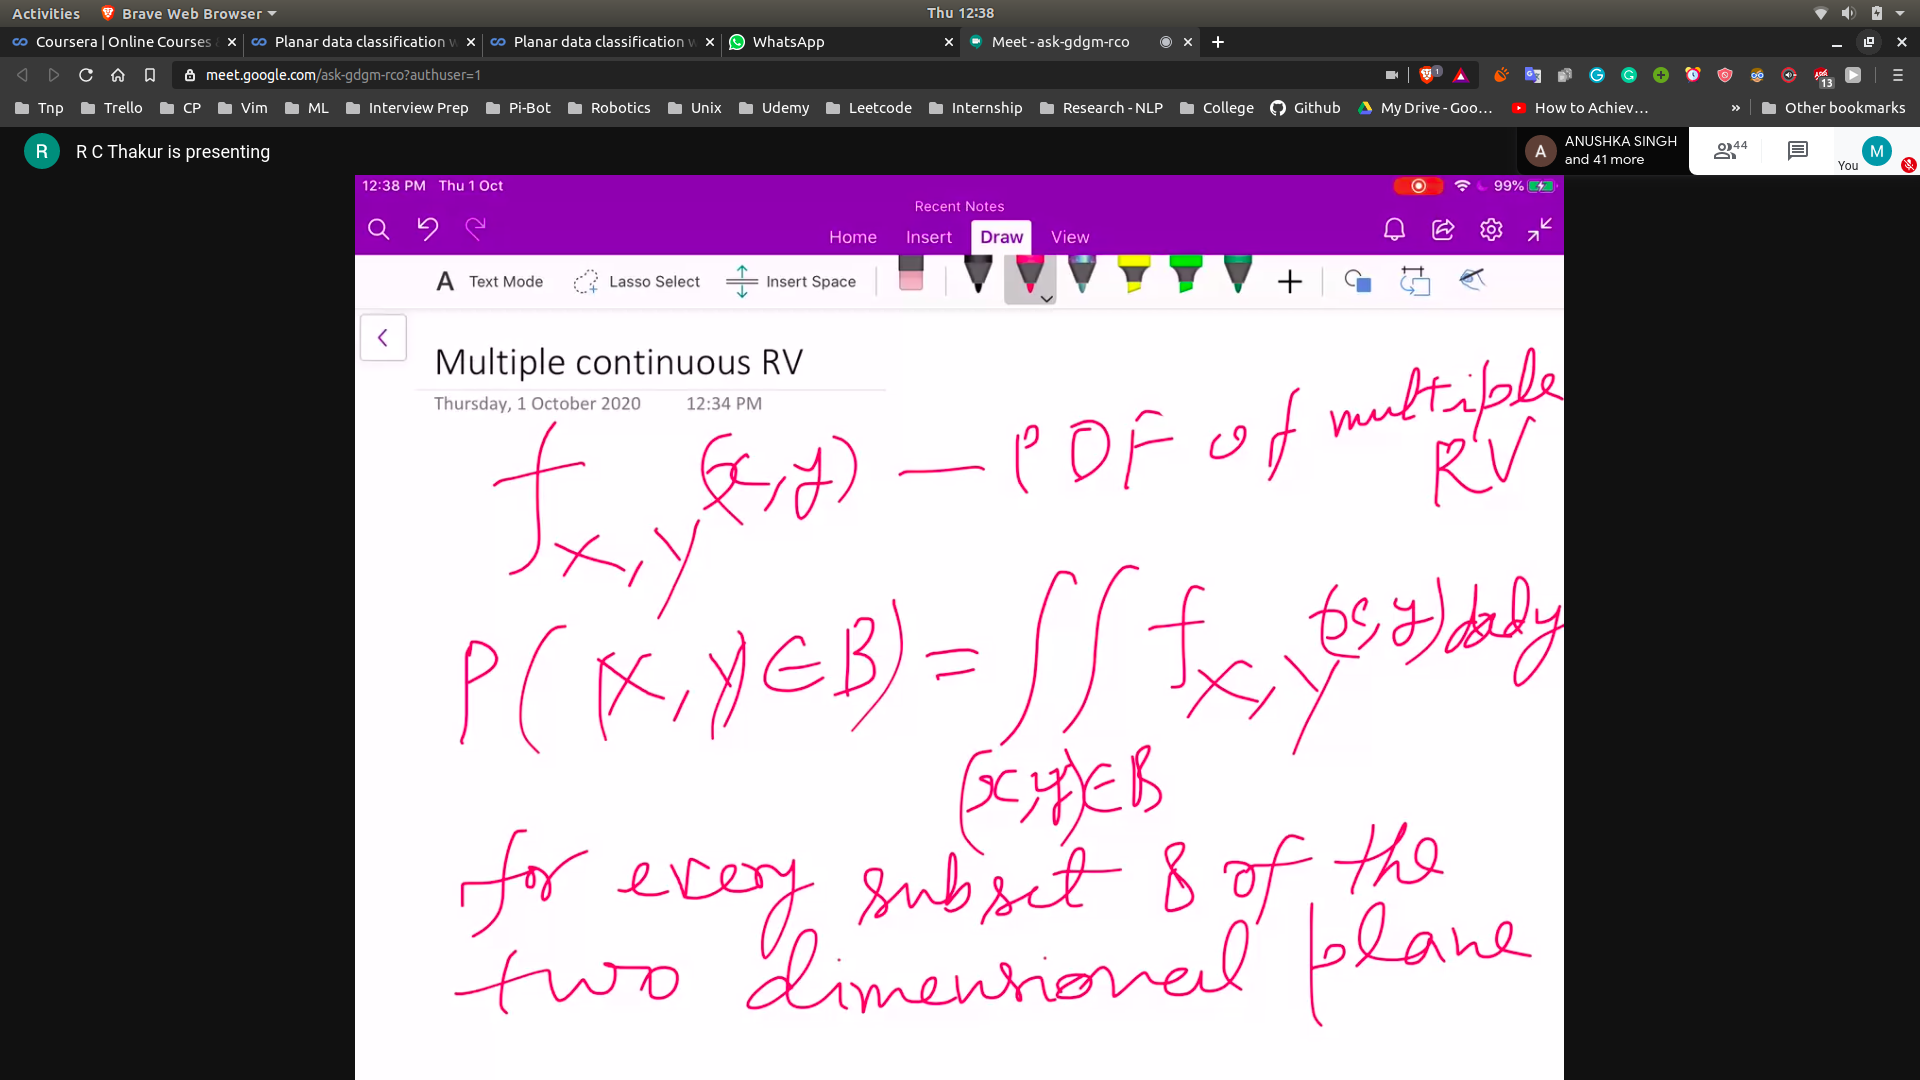 Activities Brave Web Browser Thu 12:38
Coursera | Online Courses Planar data classification w Planar data classification w WhatsApp Meet - ask-gdgm-rco
meet.google.com/ask-gdgm-rco?authuser=1 1 13
Tnp Trello CP Vim ML Interview Prep Pi-Bot Robotics Unix Udemy Leetcode Internship Research - NLP College Github My Drive - Goo... How to Achiev... » Other bookmarks
R R C Thakur is presenting A ANUSHKA SINGH and 41 more 44 You M
12:38 PM Thu 1 Oct 99%
Recent Notes
Home Insert Draw View
A Text Mode Lasso Select Insert Space
Multiple continuous RV
Thursday, 1 October 2020 12:34 PM
f_{X,Y}(x,y) — PDF of multiple
RV
P((X,Y)∈B) = ∫∫ f_{X,Y}(x,y)dxdy
(x,y)∈B
for every subset B of the
two dimensional plane